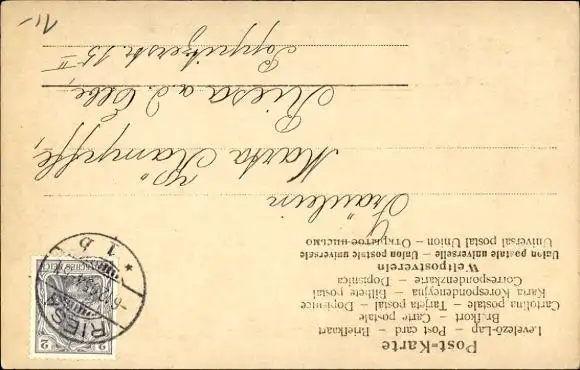 Post-Karte
Levelező-Lap – Post card – Briefkaart
Brefkort – Carte postale
Cartolina postale – Tarjeta postal – Dopisnice
Karta Korespondencyjna – Bilhete postal
Correspondenzkarte – Dopisnica
Weltpostverein
Union postale universelle – Unione postale universale
Universal postal Union – Открытое письмо
Fräulein
Marta Kampffe,
Riesa a. d. Elbe,
Poppitzerstr. 15 II
2 2
DEUTSCHES REICH
RIESA
* 1 b
11,-